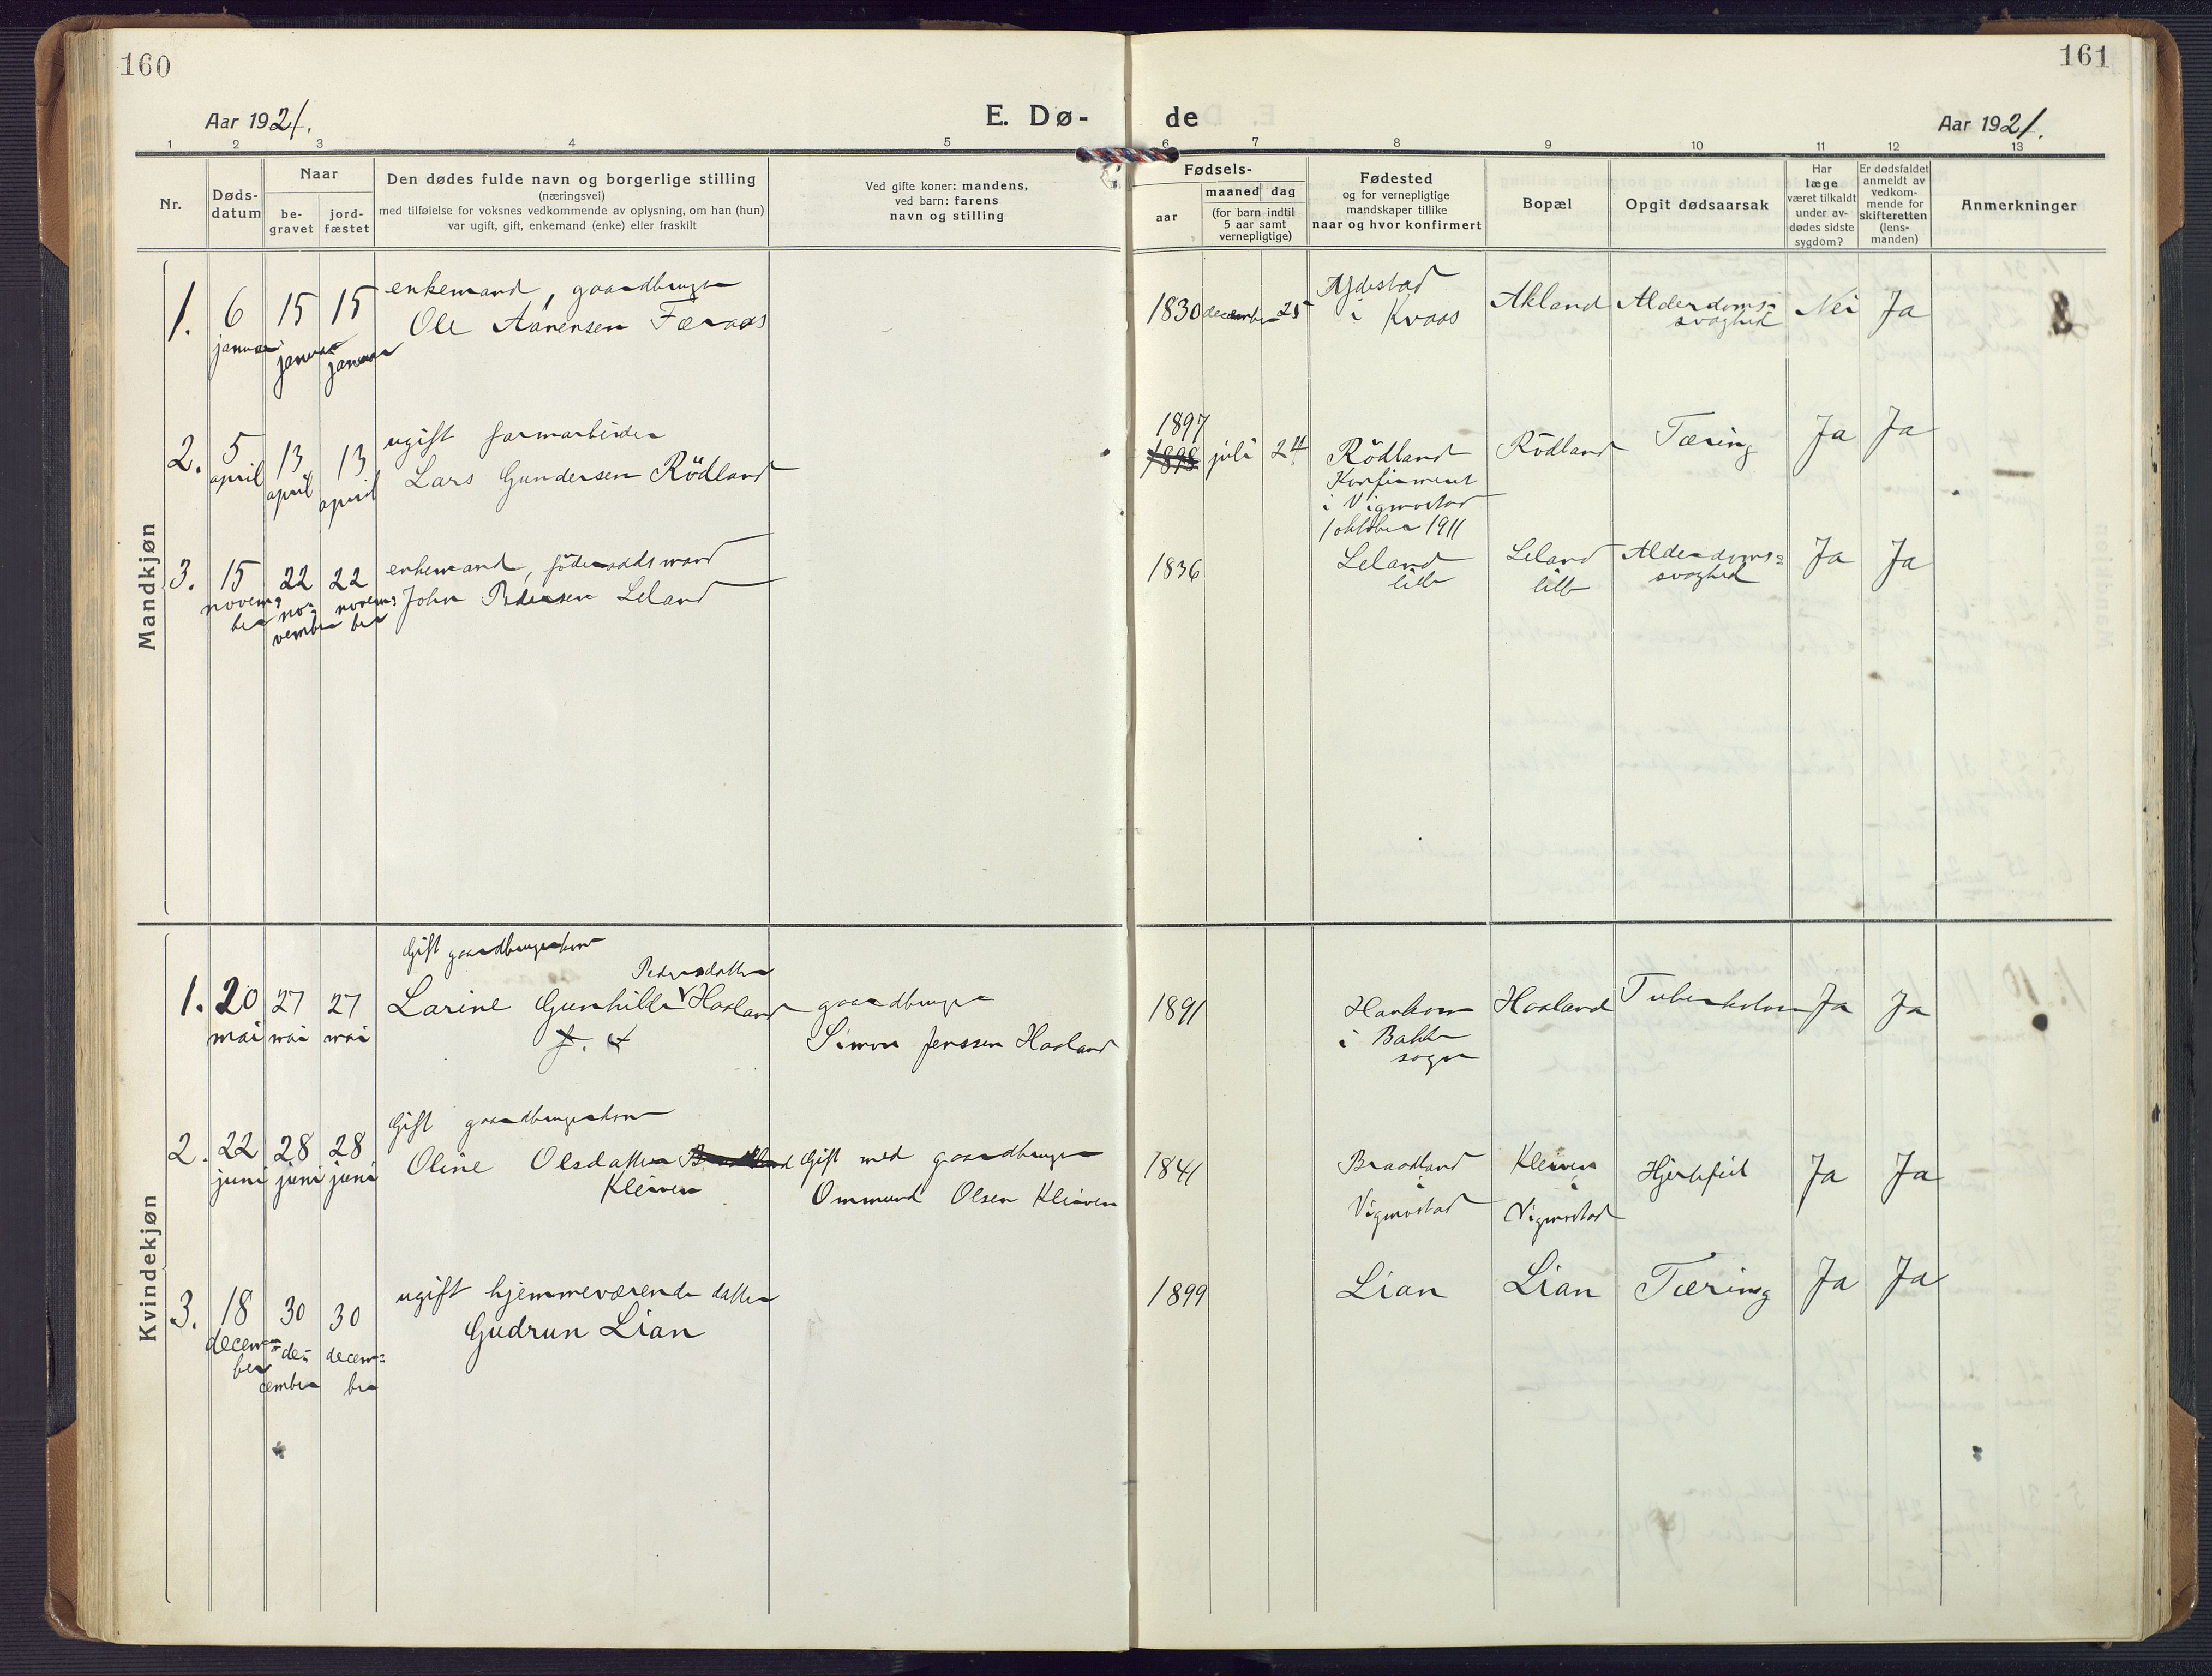 160
161
Aar 1921.
E. Dø-
de
Aar 1921.
1 2 3 4 5 6 7 8 9 10 11 12 13
Nr.
Døds-
datum
Naar
be-
gravet
jord-
fæstet
Den dødes fulde navn og borgerlige stilling
(næringsvei)
med tilføielse for voksnes vedkommende av oplysning, om han (hun)
var ugift, gift, enkemand (enke) eller fraskilt
Ved gifte koner: mandens,
ved barn: farens
navn og stilling
Fødsels-
aar
maaned dag
(for barn indtil
5 aar samt
vernepligtige)
Fødested
og for vernepligtige
mandskaper tillike
naar og hvor konfirmert
Bopæl
Opgit dødsaarsak
Har
læge
været tilkaldt
under av-
dødes sidste
sygdom?
Er dødsfaldet
anmeldt av
vedkom-
mende for
skifteretten
(lens-
manden)
Anmerkninger
Mandkjøn
1.
6
januar
15
januar
15
januar
enkemand, gaardbruger
Ole Aanensen Færaas
1830 december 25
i Kvaas
Akland
Alderdoms-
svaghed
Nei
Ja
2.
5
april
13
april
13
april
ugift farmarbeider
Lars Gundersen Rödland
1897
1898 juli 24
Rödland
Konfirmeret
i Vigmostad
1 oktober 1911
Rödland
Tæring
Ja
Ja
3.
15
novem=
ber
22
no=
vember
22
novem=
ber
enkemand, föderaadsmand
John Pedersen Leland
1836
Leland
lille
Leland
lille
Alderdoms=
svaghed
Ja
Ja
Kvindekjøn
1.
20
mai
27
mai
27
mai
Gift gaardbrugerkone
Pedersdatter
Larine Gunhilde Haaland
gaardbruger
Simon Jenssen Haaland
1891
i Bakke
sogn
Haaland
Tuberkulose
Ja
Ja
2.
22
juni
28
juni
28
juni
Gift gaardbrugerkone
Oline Olsdatter Braadland
Kleiven
Gift med gaardbruger
Ommund Olsen Kleiven
1841
Braadland
i
Vigmostad
Kleiven
i
Vigmostad
Hjertefeil
Ja
Ja
3.
18
decem=
ber
30
de=
cember
30
decem=
ber
ugift hjemmeværende datter
Gudrun Lian
1899
Lian
Lian
Tæring
Ja
Ja